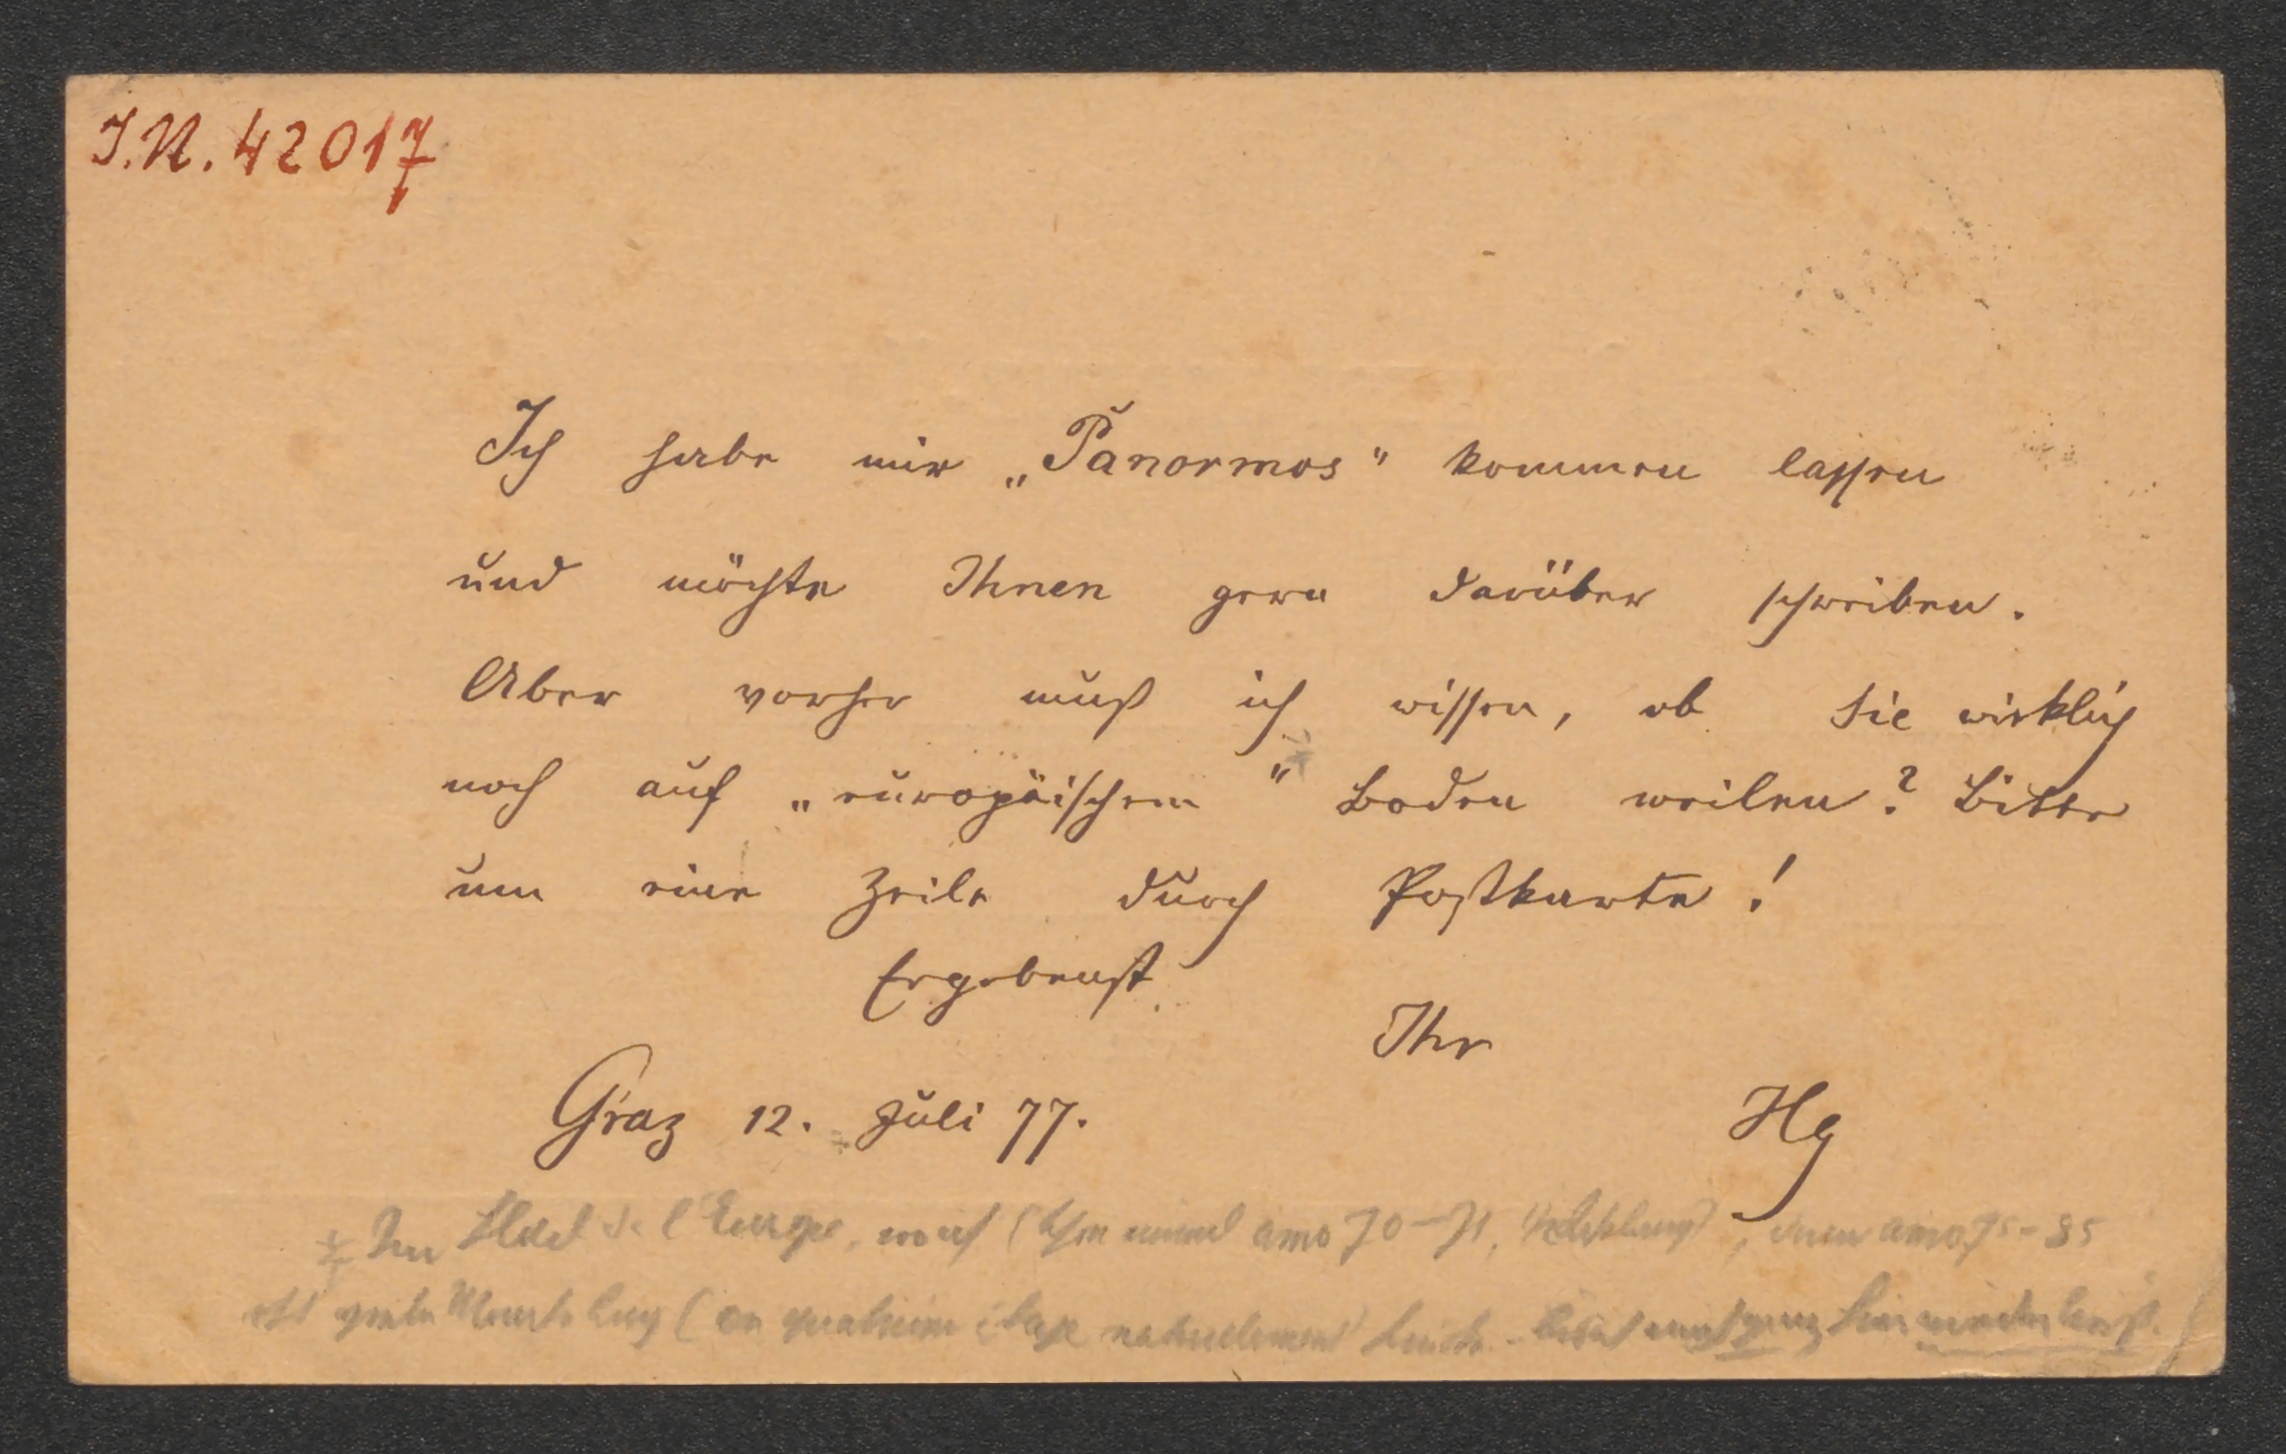 I.N. 42017
Ich habe mir „Panormos" kommen lassen
und möchte Ihnen gern darüber schreiben.
Aber vorher muß ich wissen, ob Sie wirklich
noch auf „europäischem" Boden weilen? Bitte
um eine Zeile durch Postkarte!
Ergebenst
Ihr
Graz 12. Juli 77.
Hg
Im Hotel de l'Europe, anno 70-71, anno 75-85